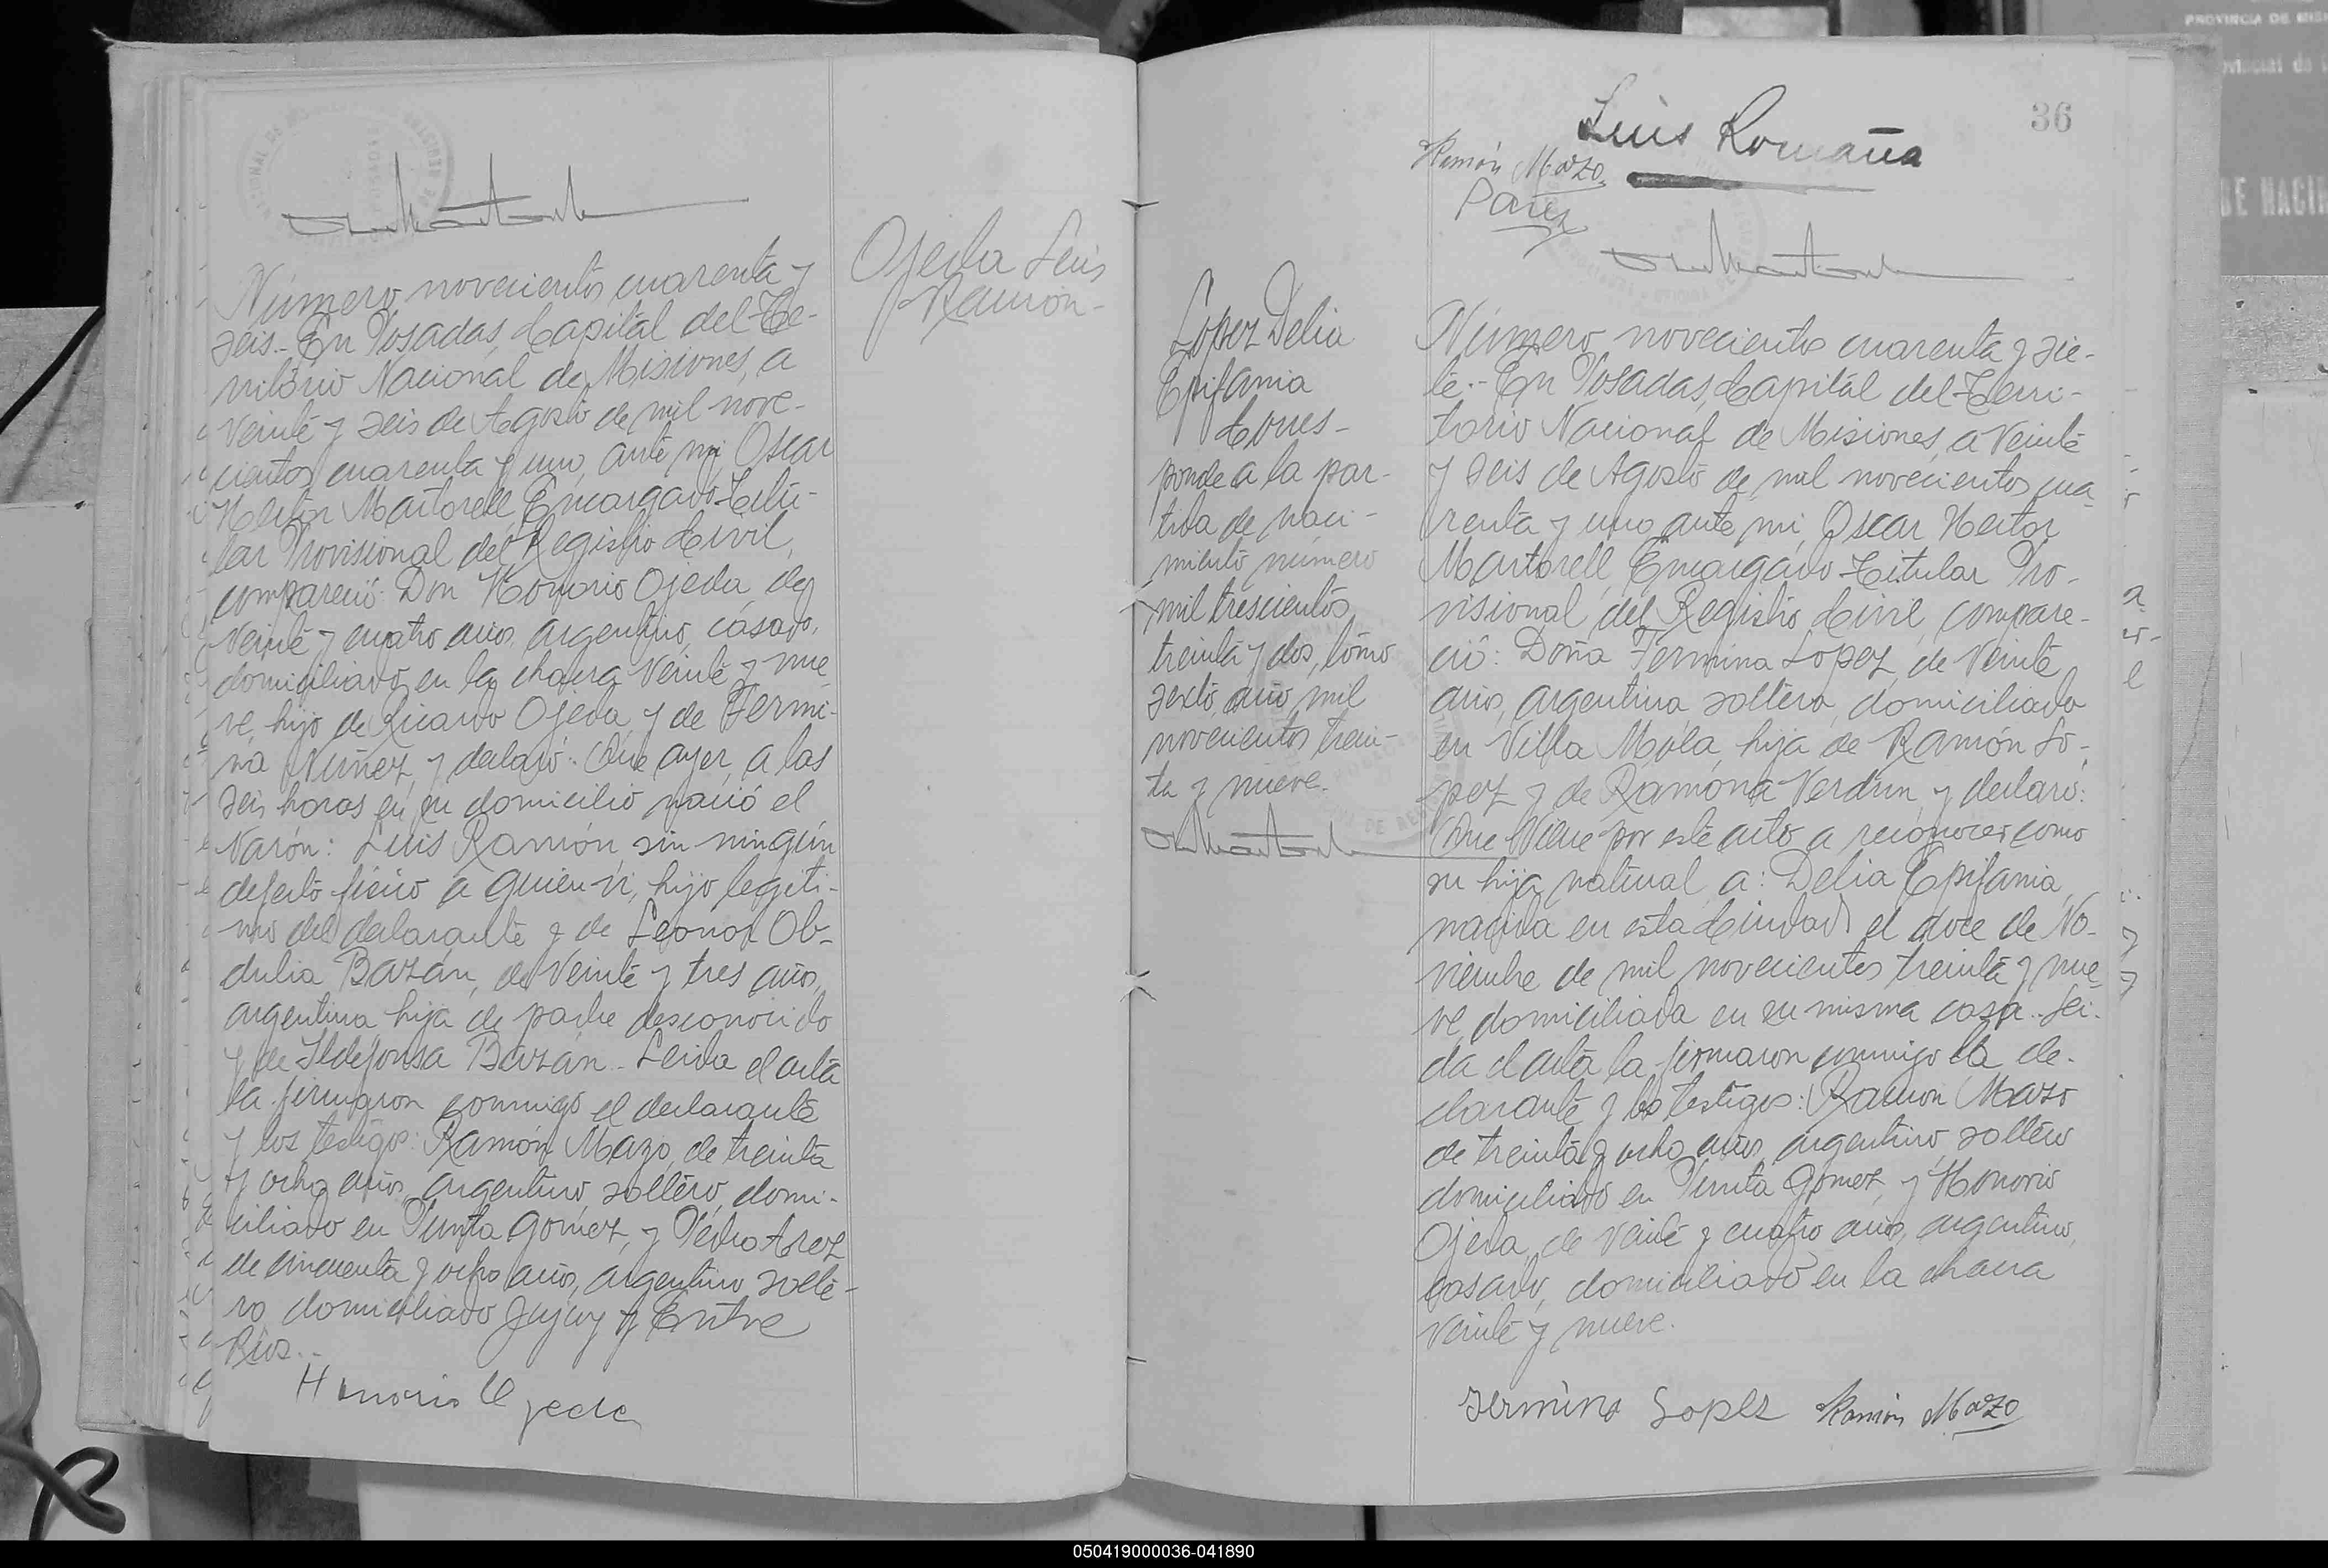 Número novecientos cuarenta y
seis.- En Posadas, Capital del Te-
rritorio Nacional de Misiones, a
veinte y seis de Agosto de mil nove-
cientos cuarenta y uno, ante mi Oscar
Hector Martorell Encargado Titu-
lar Provisional del Registro Civil,
compareció: Don Honorio Ojeda, de
veinte y cuatro años, argentino, casado,
domiciliado en la chacra veinte y nue
ve, hijo de Ricardo Ojeda y de Fermi-
na Nuñez, y declaró: Que ayer, a las
seis horas en su domicilio nació el
varón: Luis Ramón, sin ningún
defecto físico a quien vi, hijo legíti-
mo del declarante y de Leonor Ob-
dulia Bazán, de veinte y tres años,
argentina hija de padre desconocido
y de Ildefonsa Bazán.- Leida el acta
la firmaron conmigo el declarante
y los testigos: Ramón Mazo, de treinta
y ocho años, argentino, soltero, domi-
ciliado en Punta Gómez, y Pedro
de cincuenta y ocho años, argentino solte-
ro domiciliado Jujuy y Entre
Rios.-
Honorio Ojeda
Ojeda Luis
Ramón-
36
Luis Romaña
Ramón Mazo
Lopez Delia
Epifania
Corres-
ponde a la par-
tida de naci-
miento número
mil trescientos
treinta y dos, tomo
sexto, año mil
novecientos trein-
ta y nueve.
Número novecientos cuarenta y sie-
te.- En Posadas, Capital del Terri-
torio Nacional de Misiones, a veinte
y seis de Agosto de mil novecientos cua
renta y uno, ante mi, Oscar Hector
Martorell, Encargado Titular Pro-
visional del Registro Civil, compare-
ció: Doña Fermina Lopez, de veinte
años, argentina soltera, domiciliada
en Villa Mola, hija de Ramón Lo-
pez y de Ramona Verdun, y declaró:
Que viene por este acto a reconocer como
su hija natural a: Delia Epifania,
nacida en esta Ciudad el doce de No-
viembre de mil novecientos treinta y nue
ve, domiciliada en su misma casa.- Lei-
da el acta la firmaron conmigo la de-
clarante y los testigos: Ramon Mazo
de treinta y ocho años, argentino, soltero
domiciliado en Punta Gomez, y Honorio
Ojeda, de veinte y cuatro años, argentino,
casado, domiciliado en la chacra
veinte y nueve.
Fermina Lopez Ramón Mazo
PROVINCIA DE MISI
DE NACIM
050419000036-041890